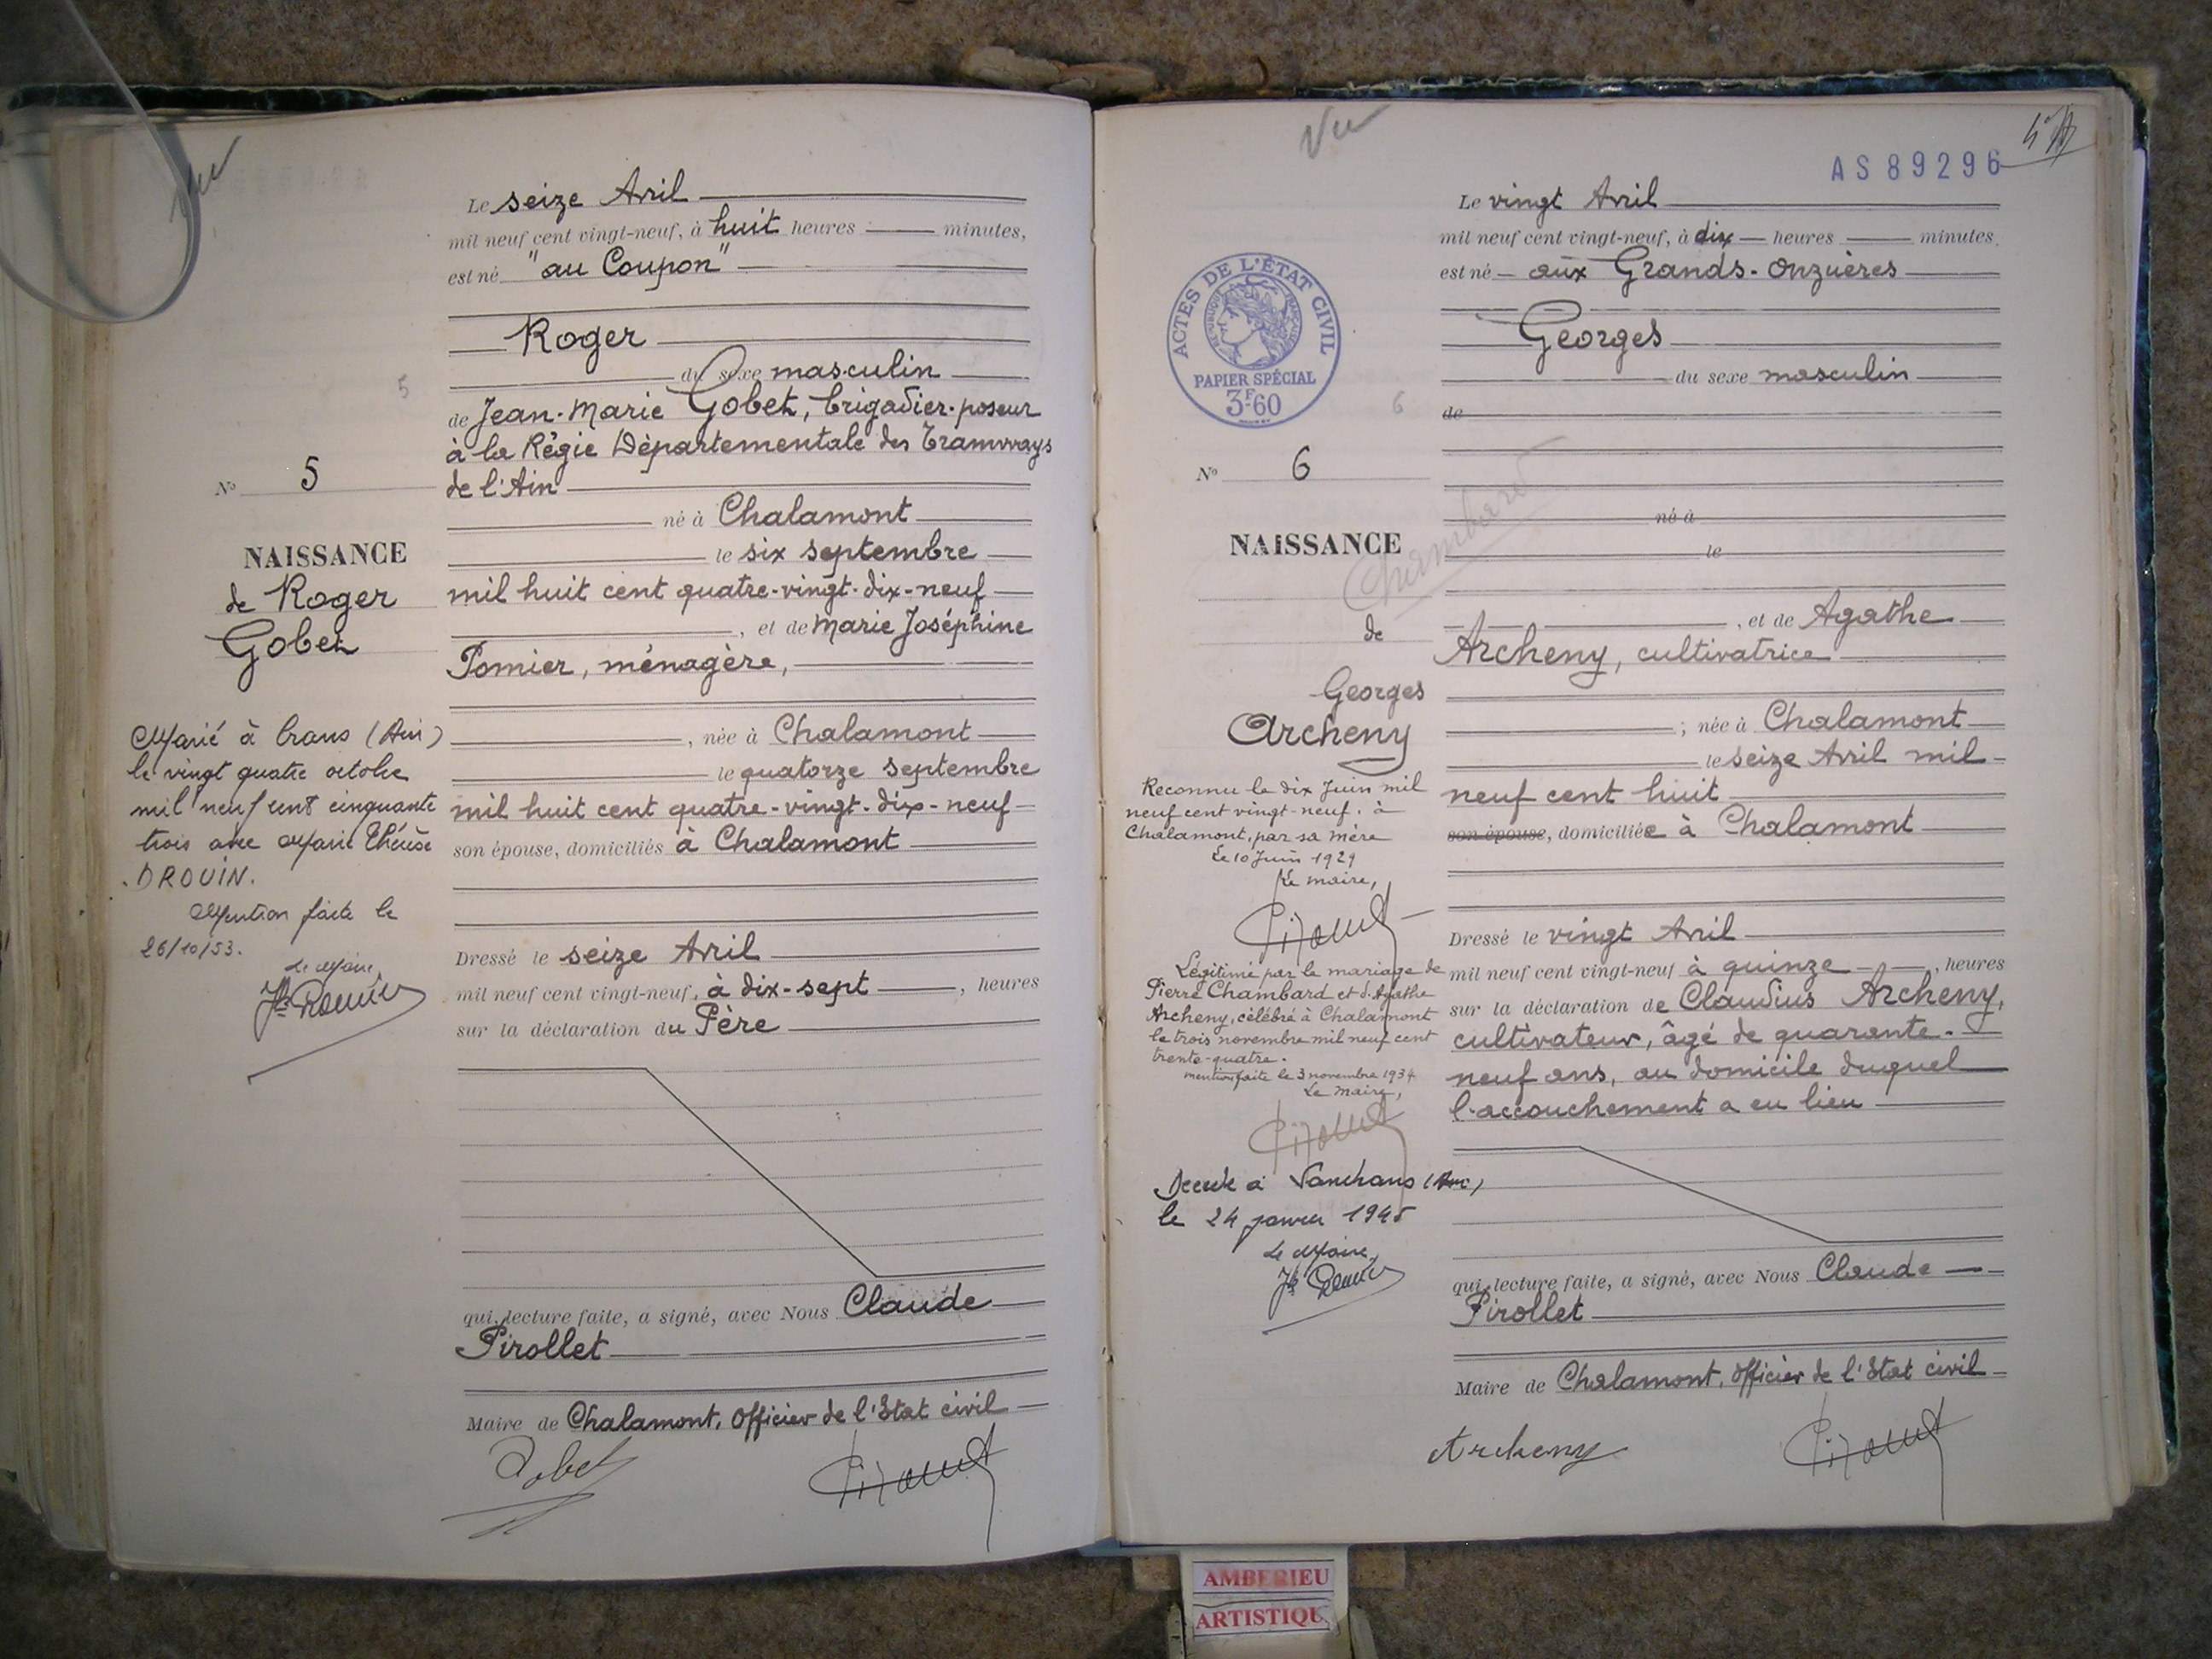 Vu
Le seize Avril
mil neuf cent vingt-neuf, à huit heures minutes,
est né "au Coupon"
Roger
du sexe masculin
5
de Jean-Marie Gobet, brigadier-poseur
à la Régie Départementale des Tramways
de l'Ain
N° 5
né à Chalamont
NAISSANCE
de Roger
Gobet
le six septembre
mil huit cent quatre-vingt-dix-neuf
, et de Marie Joséphine
Pomier, ménagère,
, née à Chalamont
le quatorze septembre
mil huit cent quatre-vingt-dix-neuf
son épouse, domiciliés à Chalamont
Marié à Crans (Ain)
le vingt quatre octobre
mil neuf cent cinquante
trois avec Marie Thérèse
DROUIN.
Mention faite le
26/10/53.
Le Maire,
Dressé le seize Avril
mil neuf cent vingt-neuf, à dix-sept , heures
sur la déclaration du Père
qui, lecture faite, a signé, avec Nous Claude
Pirollet
Maire de Chalamont, Officier de l'Etat civil
Gobet
Vu
AS 89296
Le vingt Avril
mil neuf cent vingt-neuf, à dix heures minutes,
est né aux Grands-Onzières
Georges
du sexe masculin
de
ACTES DE L'ÉTAT CIVIL
RÉPUBLIQUE FRANÇAISE
PAPIER SPÉCIAL
3F.60
6
N° 6
Chambard
NAISSANCE
de
Georges
Archeny
né à
le
, et de Agathe
Archeny, cultivatrice
; née à Chalamont
le seize Avril mil
neuf cent huit
son épouse, domiciliée à Chalamont
Reconnu le dix Juin mil
neuf cent vingt-neuf, à
Chalamont, par sa mère
Le 10 Juin 1929
Le maire,
Légitimé par le mariage de
Pierre Chambard et d'Agathe
Archeny, célébré à Chalamont
le trois novembre mil neuf cent
trente-quatre.
mention faite le 3 novembre 1934
Le maire,
le 24 janvier 1945
Le Maire,
Dressé le vingt Avril
mil neuf cent vingt-neuf à quinze , heures
sur la déclaration de Claudius Archeny,
cultivateur, âgé de quarante-
neuf ans, au domicile duquel
l'accouchement a eu lieu
qui, lecture faite, a signé, avec Nous Claude
Pirollet
Maire de Chalamont, Officier de l'Etat civil
Archeny
AMBERIEU
ARTISTIQU